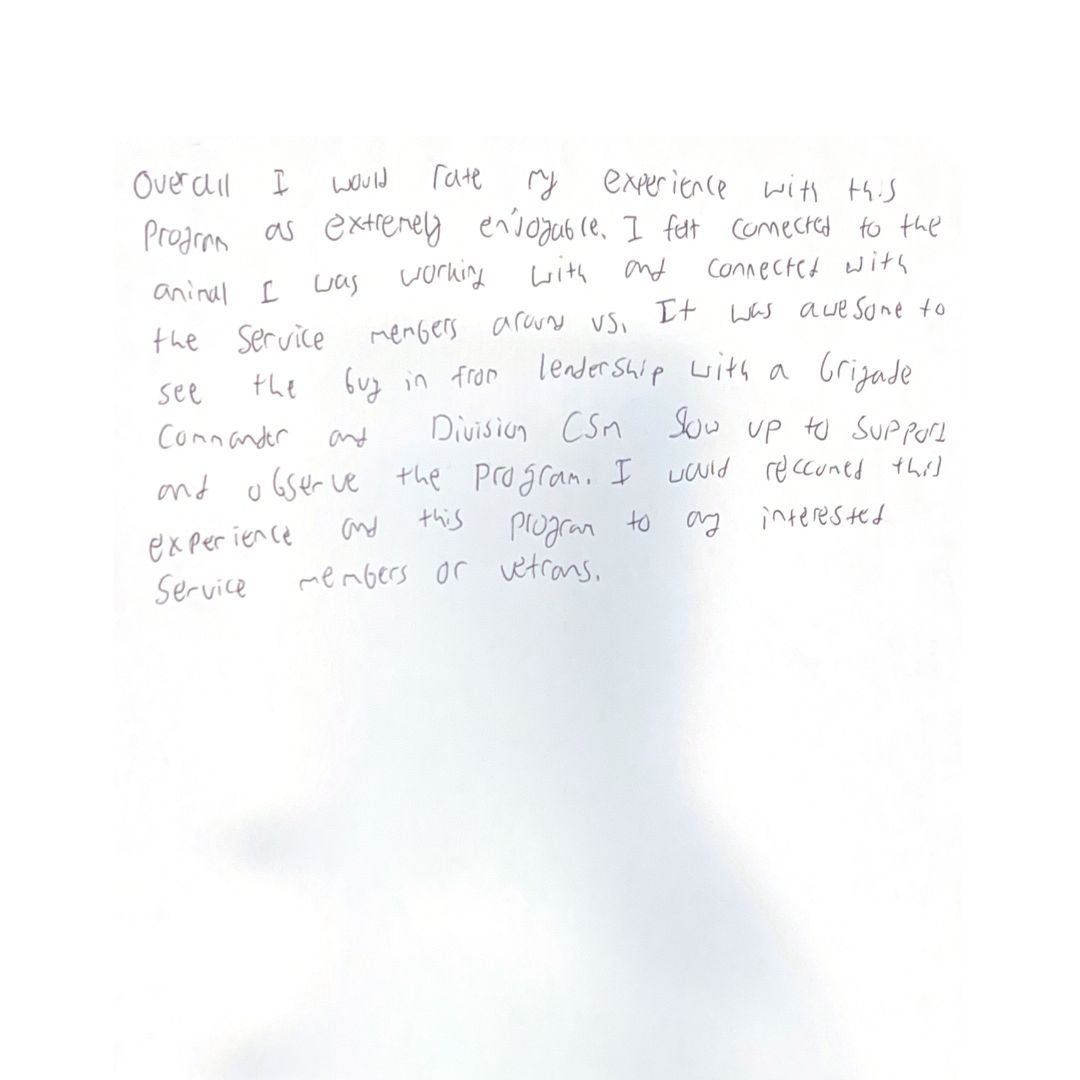 Overall I would rate my experience with this
program as extremely enjoyable. I felt connected to the
animal I was working with and connected with
the service members around us. It was awesome to
see the buy in from leadership with a brigade
Commander and Division CSM show up to support
and observe the program. I would reccomend this
experience and this program to any interested
service members or vetrans.